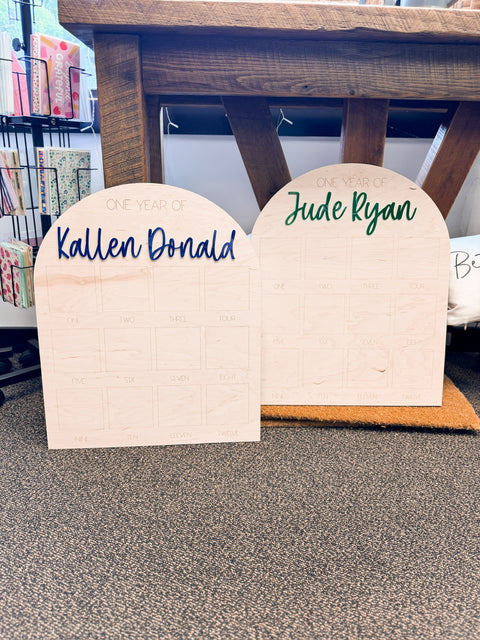 ONE YEAR OF
Kallen Donald
ONE TWO THREE FOUR
FIVE SIX SEVEN EIGHT
NINE TEN ELEVEN TWELVE
ONE YEAR OF
Jude Ryan
ONE TWO THREE FOUR
FIVE SIX SEVEN EIGHT
NINE TEN ELEVEN TWELVE
Be